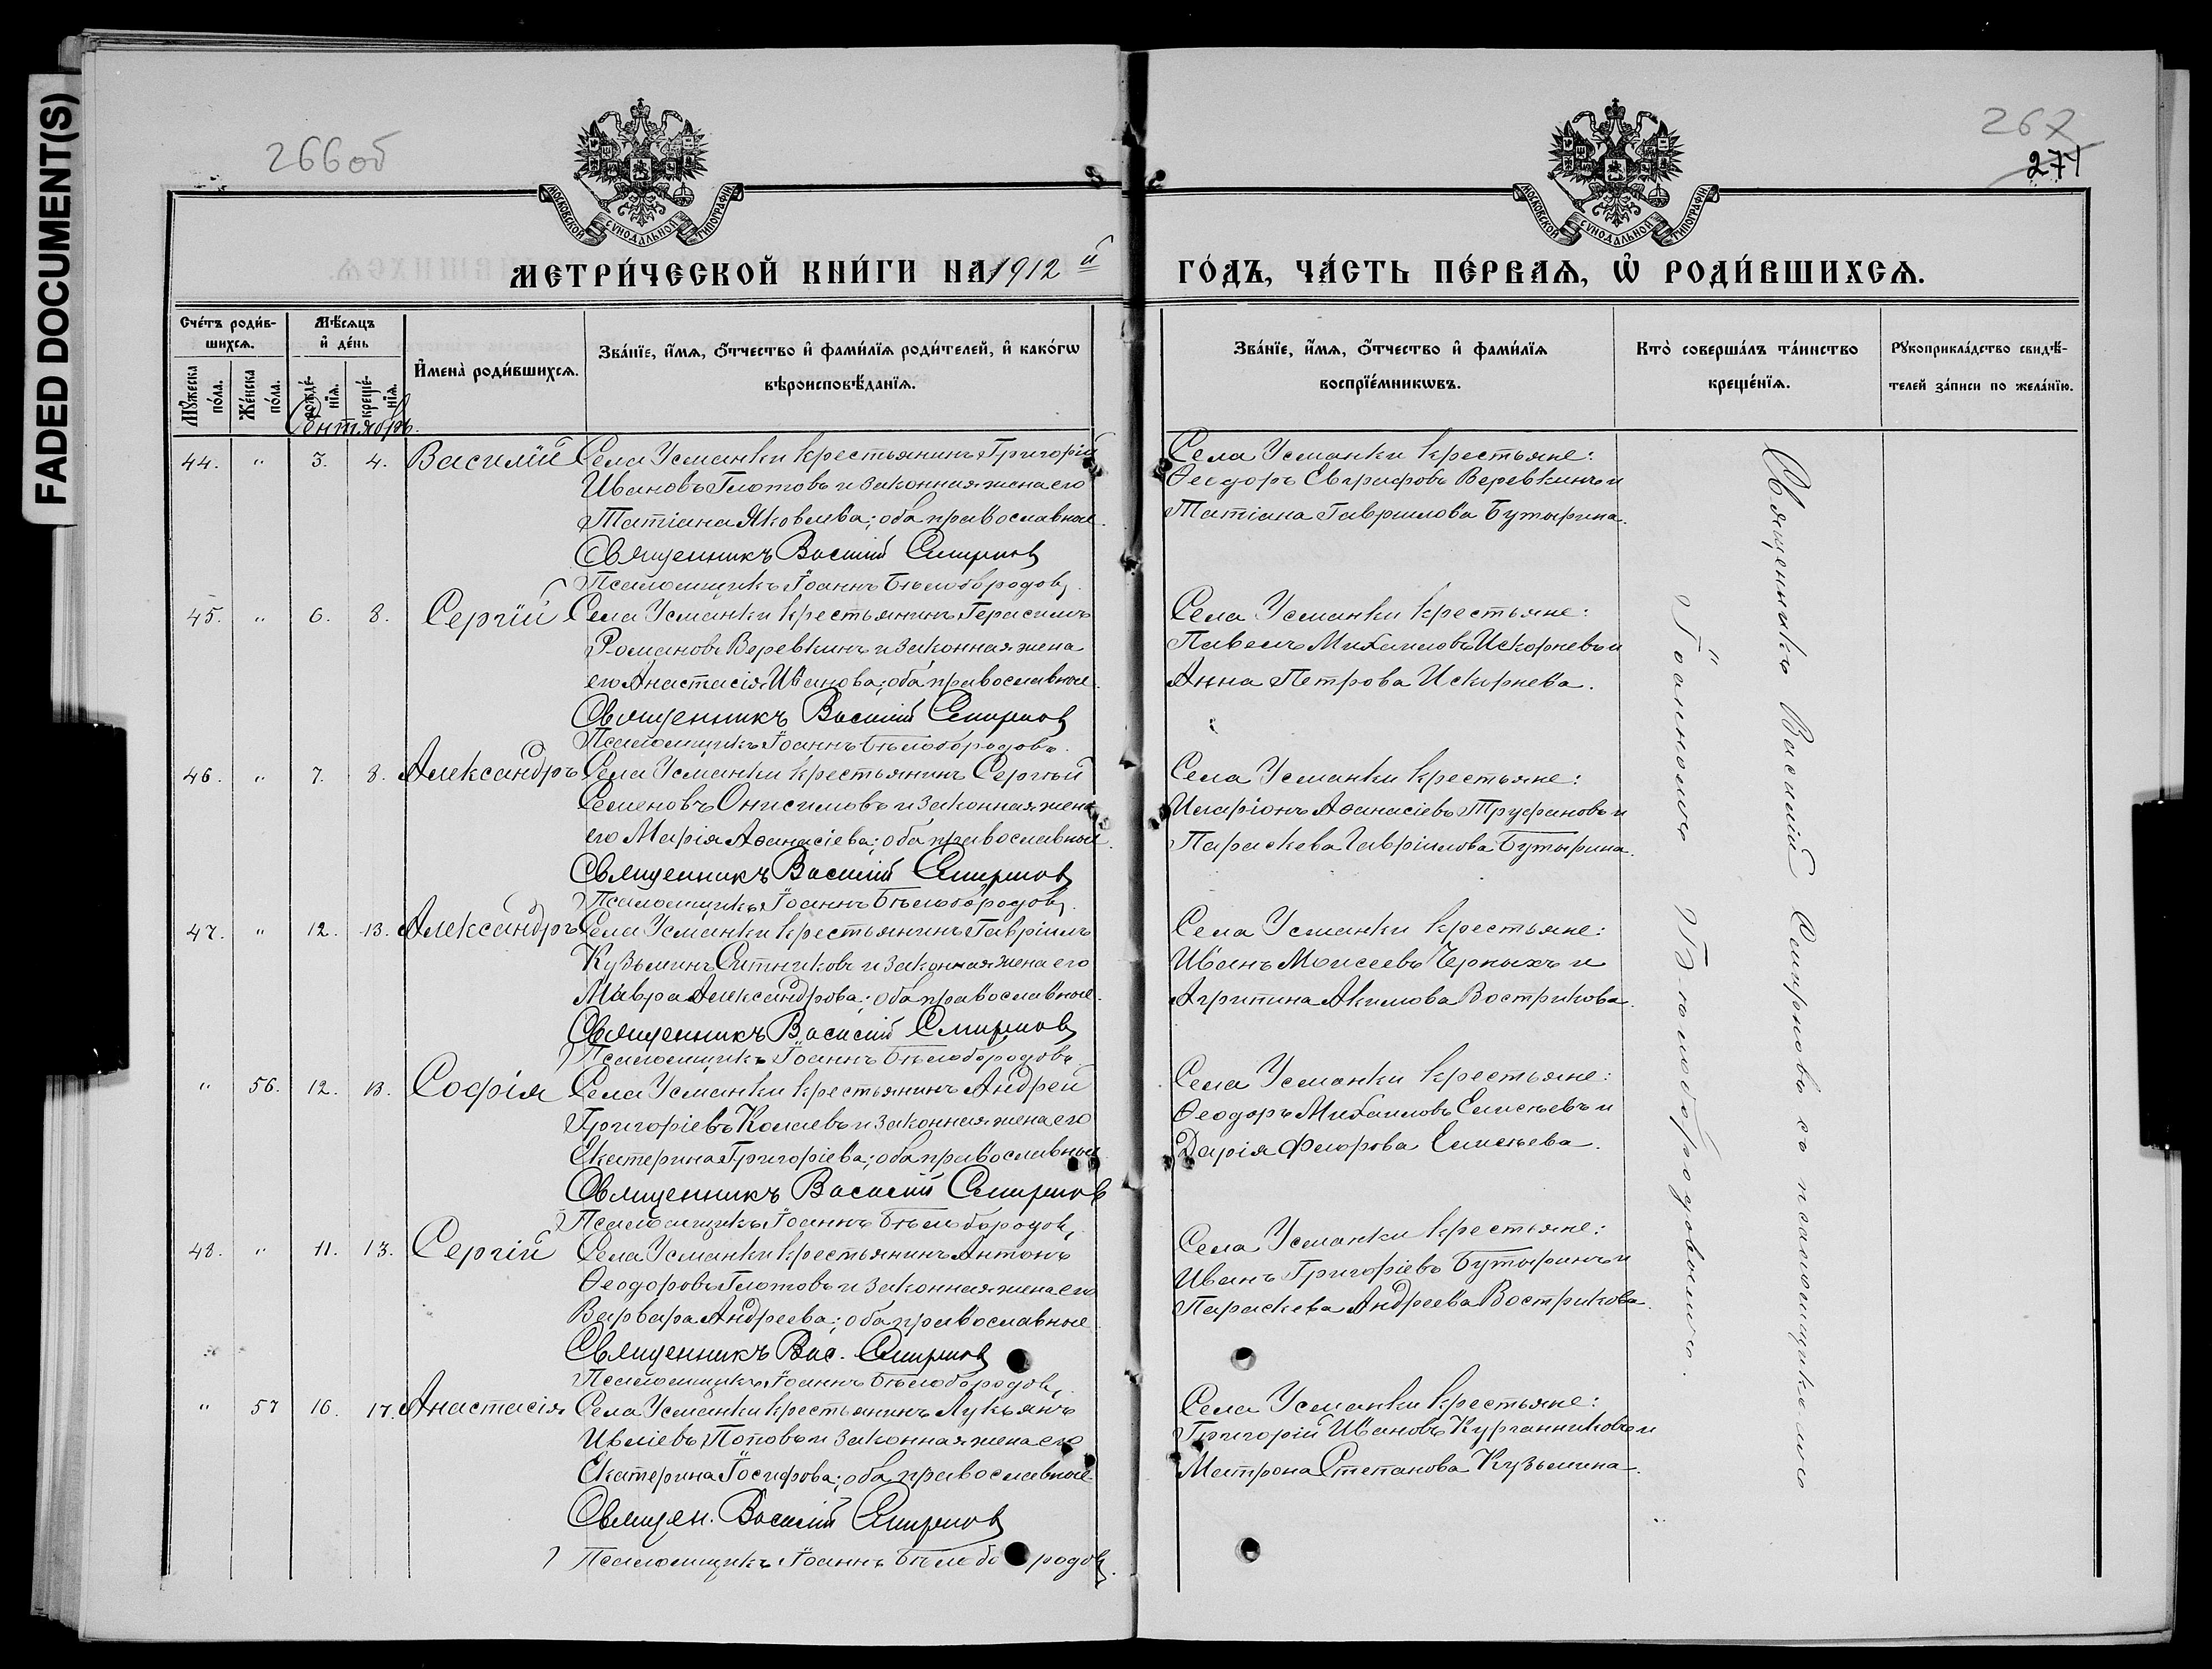 FADED DOCUMENT(S)
266об
267
271
МОСКОВСКОЙ СѴНОДАЛЬНОЙ ТИПОГРАФІИ
МОСКОВСКОЙ СѴНОДАЛЬНОЙ ТИПОГРАФІИ
МЕТРИ́ЧЕСКОЙ КНИ́ГИ НА 1912й
ГО́ДЪ, ЧА́СТЬ ПЕ́РВАѦ, Ѡ҆ РОДИ́ВШИХСѦ.
Сче́тъ роди́в-
шихсѧ.
Мѣ́сѧцъ
и҆ де́нь
Мꙋ́жеска по́ла.
Же́нска по́ла.
рожде́-нїѧ.
креще́-нїѧ.
И҆мена̀ роди́вшихсѧ.
Зва́нїе, и҆́мѧ, ѻ҆́тчество и҆ фами́лїѧ роди́телей, и҆ како́гѡ
вѣроисповѣ́данїѧ.
Зва́нїе, и҆́мѧ, ѻ҆́тчество и҆ фами́лїѧ
воспрїе́мникѡвъ.
Кто̀ соверша́лъ та́инство
креще́нїѧ.
Рꙋкоприкла́дство свидѣ́-
телей за́писи по жела́нїю.
Сентябрь.
44. " 3. 4. Василій Села Усманки крестьянинъ Григорій
Ивановъ Глотовъ и законная жена его
Татіана Яковлева; оба православные.
Священникъ Василій Смирнов
Псаломщикъ Іоаннъ Бѣлобородов.
Села Усманки крестьяне:
Ѳеодоръ Евграфовъ Веревкинъ и
Татіана Гаврилова Бутырина.
45. " 6. 8. Сергій Села Усманки крестьянинъ Герасимъ
Романовъ Веревкинъ и законная жена
его Анастасія Иванова; оба православные.
Священникъ Василій Смирнов
Псаломщикъ Іоаннъ Бѣлобородовъ.
Села Усманки крестьяне:
Павелъ Михаиловъ Искорневъ и
Анна Петрова Искорнева.
46. " 7. 8. Александръ Села Усманки крестьянинъ Сергѣй
Семеновъ Онисимовъ и законная жена
его Марія Аѳанасіева; оба православные.
Священникъ Василій Смирнов
Псаломщикъ Іоаннъ Бѣлобородов.
Села Усманки крестьяне:
Иларіонъ Аѳанасіевъ Труфановъ и
Параскева Гавріилова Бутырина.
47. " 12. 13. Александръ Села Усманки крестьянинъ Гавріилъ
Кузьминъ Ситниковъ и законная жена его
Мавра Александрова; оба православные.
Священникъ Василій Смирнов
Псаломщикъ Іоаннъ Бѣлобородовъ
Села Усманки крестьяне:
Иванъ Моисеевъ Черныхъ и
Агрипина Акимова Вострикова.
" 56. 12. 13. Софія Села Усманки крестьянинъ Андрей
Григоріевъ Комаевъ и законная жена его
Екатерина Григоріева; оба православные
Священникъ Василій Смирнов
Псаломщикъ Іоаннъ Бѣлобородов.
Села Усманки крестьяне:
Ѳеодоръ Михаиловъ Елисѣевъ и
Дарія Флорова Елисѣева.
48. " 11. 13. Сергій Села Усманки крестьянинъ Антонъ
Ѳеодоровъ Глотовъ и законная жена его
Варвара Андреева; оба православные
Священникъ Вас. Смирнов
Псаломщикъ Іоаннъ Бѣлобородов.
Села Усманки крестьяне:
Иванъ Григоріевъ Бутыринъ и
Параскева Андреева Вострикова.
" 57 16. 17. Анастасія Села Усманки крестьянинъ Лукьянъ
Ивліевъ Поповъ и законная жена его
Екатерина Іосифова; оба православные
Священ. Василій Смирнов
Псаломщикъ Іоаннъ Бѣлобородов.
Села Усманки крестьяне:
Григорій Ивановъ Курганниковъ и
Матрона Степанова Кузьмина.
Священникъ Василій Смирновъ съ псаломщикомъ
Іоанномъ Бѣлобородовымъ.